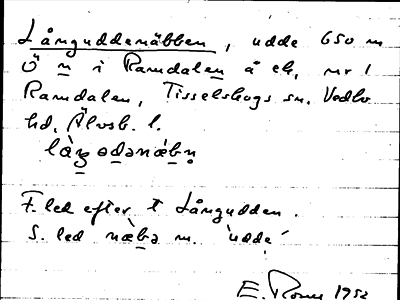 Långuddenäbben, udde 650 m
Ö n i Ramdalen å ek, nr 1
Ramdalen, Tisselskogs sn. Vedbo
hd. Älvsb. l.
F. led efter t Långudden.
S. led näbə m. 'udde'
E. 1952